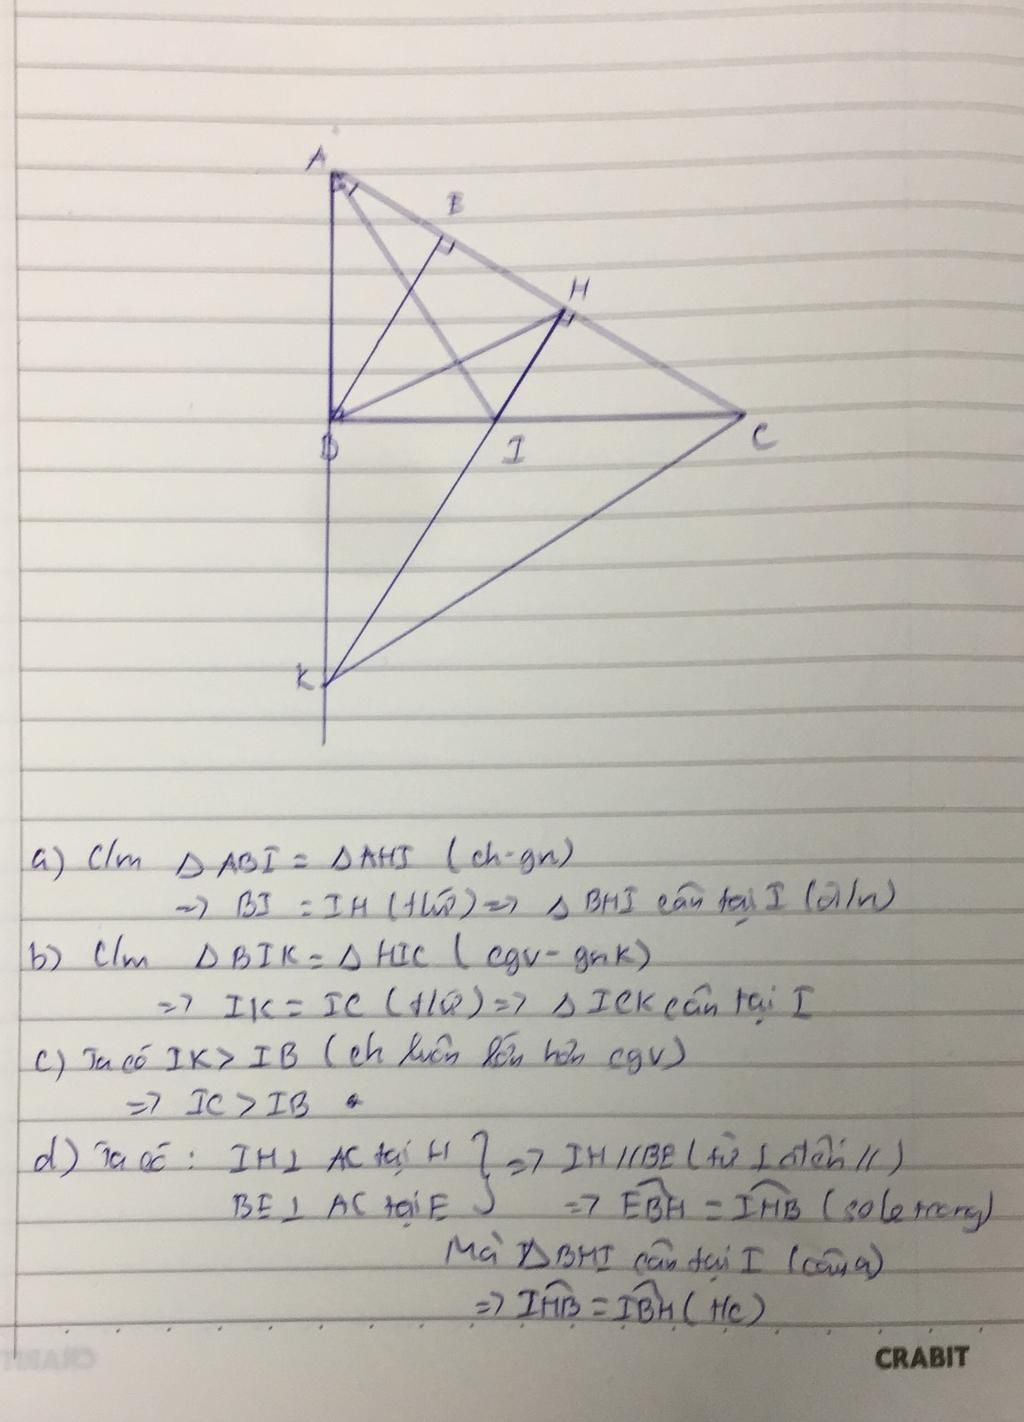 A
E
H
B
I
C
K
a) C/m Δ ABI = Δ AHI (ch-gn)
=> BI = IH (tứ) => Δ BHI cân tại I (đ/n)
b) C/m Δ BIK = Δ HIC (cgv - gnk)
=> IK = IC (tứ) => Δ ICK cân tại I
c) Ta có IK > IB (ch luôn lớn hơn cgv)
=> IC > IB
d) Ta có : IH ⊥ AC tại H } => IH // BE (từ ⊥ đến //)
BE ⊥ AC tại E => EBH = IHB (so le trong)
Mà ΔBHI cân tại I (câu a)
=> IHB = IBH (t/c)
CRABIT